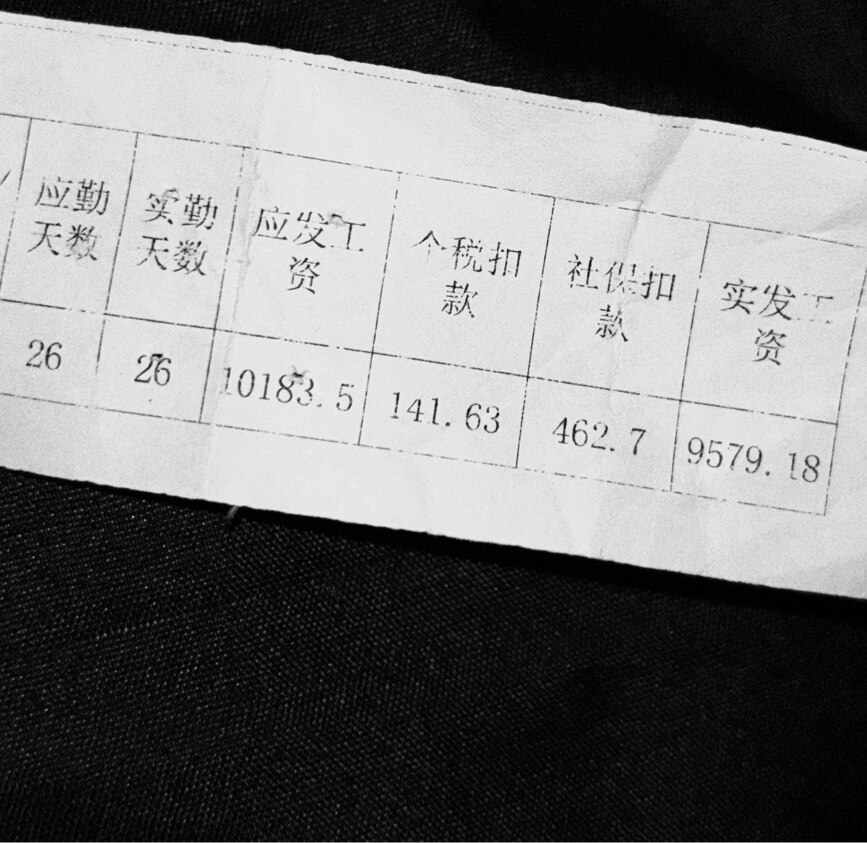 应勤天数
实勤天数
应发工资
个税扣款
社保扣款
实发工资
26
26
10183.5
141.63
462.7
9579.18